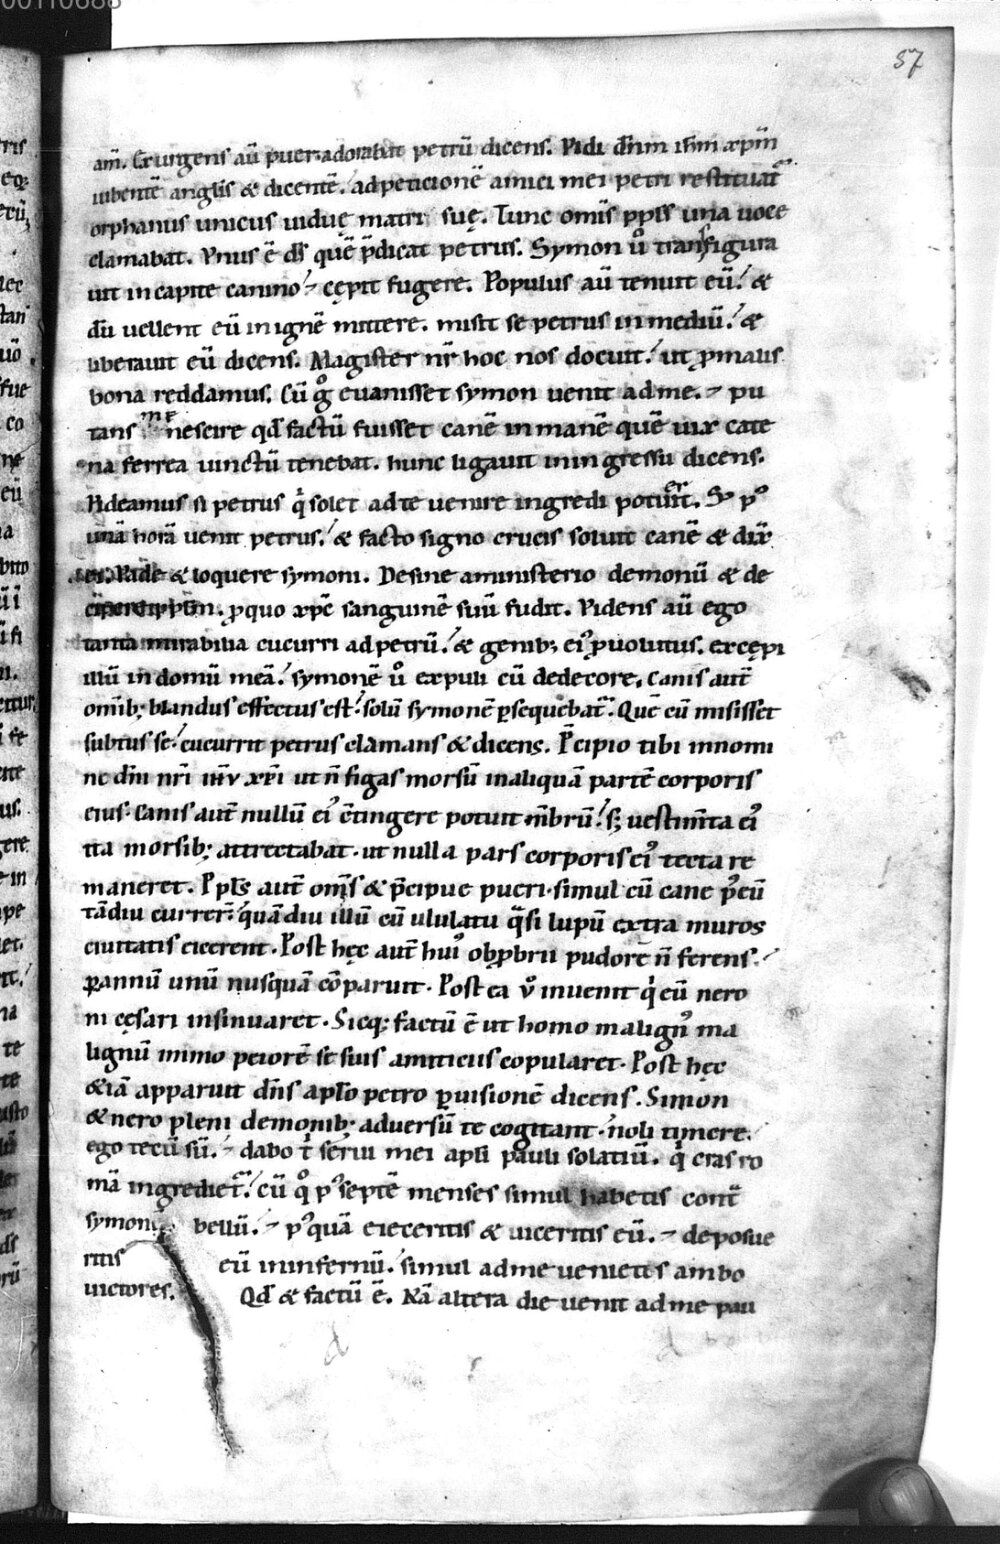 00110688
57
am̄. Exurgens aū puer adorabat petrū dicens. Vidi dn̄m ih̄m xp̄m
iubentē anglis & dicentē. ad peticionē amici mei petri restituat̄
orphanus unicus uiduę matri suę. Tunc om̄s pp̄ls una uoce
clamabat. Vnus ē ds̄ quē p̄dicat petrus. Symon ů transfigura
uit in capite canino / cępit fugere. Populus aū tenuit eū. &
dū uellent eū in ignē mittere. misit se petrus in mediū. &
liberauit eū dicens. Magister nr̄ hoc nos docuit. ut ꝓ malis
bona reddamus. Cū g̊ euanisset symon uenit ad me. ⁊ pu
tans me nescire qđ factū fuisset canē in manē quē uix cate
na ferrea uinctū tenebat. hunc ligauit in ingressu dicens.
Videamus si petrus q̇ solet ad te uenire ingredi potuerit. S; pꝰ
unā horā uenit petrus. & facto signo crucis soluit canē & dix̄
ei. Vade & loquere symoni. Desine a ministerio demonū & de
cipere pp̄lm. ꝓ quo xp̄c sanguinē suū fudit. Videns aū ego
tanta mirabilia cucurri ad petrū. & genib; eiꝰ ꝓuolutus. excępi
illū in domū meā. symonē ů expuli cū dedecore. Canis aut̄
omīb; blandus effectus est. solū symonē ꝑsequebat̄. Que cū misisset
subtus se. cucurrit petrus clamans & dicens. P̄cipio tibi in nomi
ne dn̄i nr̄i ih̄u xp̄i ut n̄ figas morsū in aliquā partē corporis
eius. Canis aut̄ nullū eiꝰ ctingere potuit m̄brū. s; uestim̄ta eiꝰ
ita morsib; attrectabat. ut nulla pars corporis eiꝰ tecta re
maneret. Pp̄ls aut̄ om̄s & p̄cipue pueri. simul cū cane pꝰ eū
tādiu currer̄. quādiu illū cū ululatu q̄si lupū extra muros
ciuitatis eicerent. Post hęc aut̄ huiꝰ obꝓbrii pudorē n̄ ferens.
ꝑ annū unū nusquā cōparuit. Post ea v̊ inuenit q̇ eū nero
ni cęsari insinuaret. Sicq; factū ē ut homo malignꝰ ma
lignū immo peiorē se suis amiticiis copularet. Post hęc
&iā apparuit dn̄s apl̄o petro ꝑ uisionē dicens. Simon
& nero pleni demonib; aduersū te cogitant. noli timere.
ego tecū sū. ⁊ dabo ṫ serui mei apl̄i pauli solatiū. q̇ cras ro
mā ingrediet̄. cū q̊ pꝰ septē menses simul habetis cont̄
symonē bellū. ⁊ pꝰquā eieceritis & uiceritis eū. ⁊ deposue
ritis eū in infernū. simul ad me uenietis ambo
uictores. Qđ & factū ē. Nā altera die uenit ad me pau